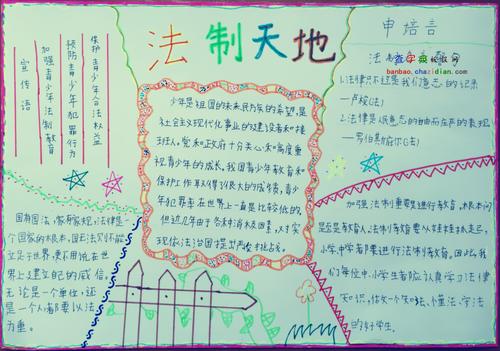 法制天地
宣传语
加强青少年法制教育
预防青少年犯罪行为
保护青少年合法权益
少年是祖国的未来,民族的希望,是
社会主义现代化事业的建设者和接
班人。党和政府十分关心和高度重
视青少年的成长。我国青少年教育和
保护工作取得了很大的成绩,青少
年犯罪率在世界上一直是比较低的。
但近几年由于各种消极因素,对实
现依法治国提出了
国有国法,家有家规,法律是一
个国家的根本,国无法则不能
立足于世界,更不用说在世
界上建立自己的威信。
无论是一个单位,还
是一个人,都要以法
为重。
申培言
法
数学家教教网
banbao.chazidian.com
1.法律只不过是我们意志的记录
—卢梭(法)
2.法律是人民意志的自由而庄严的表现
—罗伯斯庇尔(法)
加强法制重要是进行教育,根本问
是教育人。法制教育要从娃娃抓起,
小学、中学都要进行法制教育。因此,我
们每位中、小学生都应认真学习法律
知识,做一个知法、懂法、守法
的好学生。